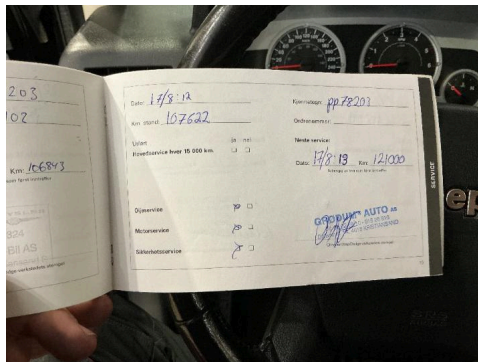 203
102
Km: 106843
324
Bil AS
Dato: 17/8-12
Km. stand: 107622
Utført: ja nei
Hovedservice hver 15 000 km.
Oljeservice
Motorservice
Sikkerhetsservice
Kjennetegn: pp78203
Ordrenummer:
Neste service:
Dato: 17/8-13 Km: 121000
AUTO AS
SERVICE
ep